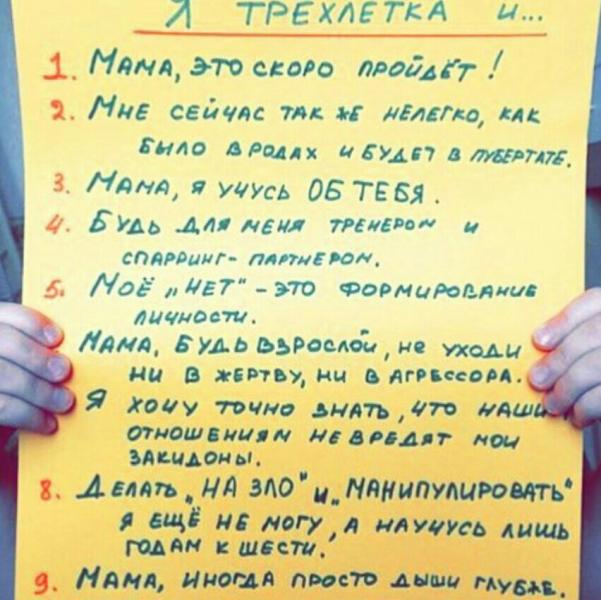 Я ТРЕХЛЕТКА И...
1. МАМА, ЭТО СКОРО ПРОЙДЁТ!
2. МНЕ СЕЙЧАС ТАК ЖЕ НЕЛЕГКО, КАК
БЫЛО В РОДАХ И БУДЕТ В ПУБЕРТАТЕ.
3. МАМА, Я УЧУСЬ ОБ ТЕБЯ.
4. БУДЬ ДЛЯ МЕНЯ ТРЕНЕРОМ И
СПАРРИНГ-ПАРТНЕРОМ.
5. МОЁ „НЕТ" - ЭТО ФОРМИРОВАНИЕ
ЛИЧНОСТИ.
МАМА, БУДЬ ВЗРОСЛОЙ, НЕ УХОДИ
НИ В ЖЕРТВУ, НИ В АГРЕССОРА.
Я ХОЧУ ТОЧНО ЗНАТЬ, ЧТО НАШИМ
ОТНОШЕНИЯМ НЕ ВРЕДЯТ МОИ
ЗАКИДОНЫ.
8. ДЕЛАТЬ „НА ЗЛО" И „МАНИПУЛИРОВАТЬ"
Я ЕЩЁ НЕ МОГУ, А НАУЧУСЬ ЛИШЬ
ГОДАМ К ШЕСТИ.
9. МАМА, ИНОГДА ПРОСТО ДЫШИ ГЛУБЖЕ.